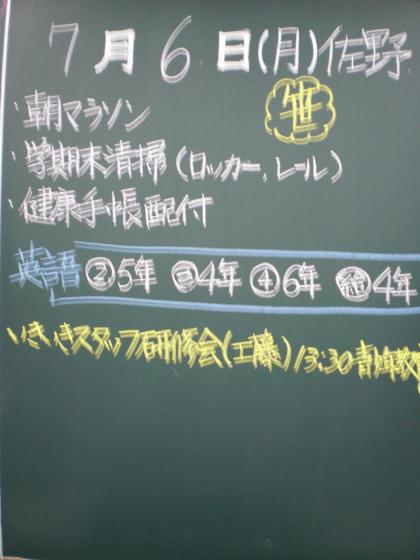 7月6日(月)佐野
笹
・朝マラソン
・学期末清掃(ロッカー,レール)
・健康手帳配付
英語 ②5年 ③4年 ④6年 4年
いきいきスタッフ研修会(工藤)13:30青年教